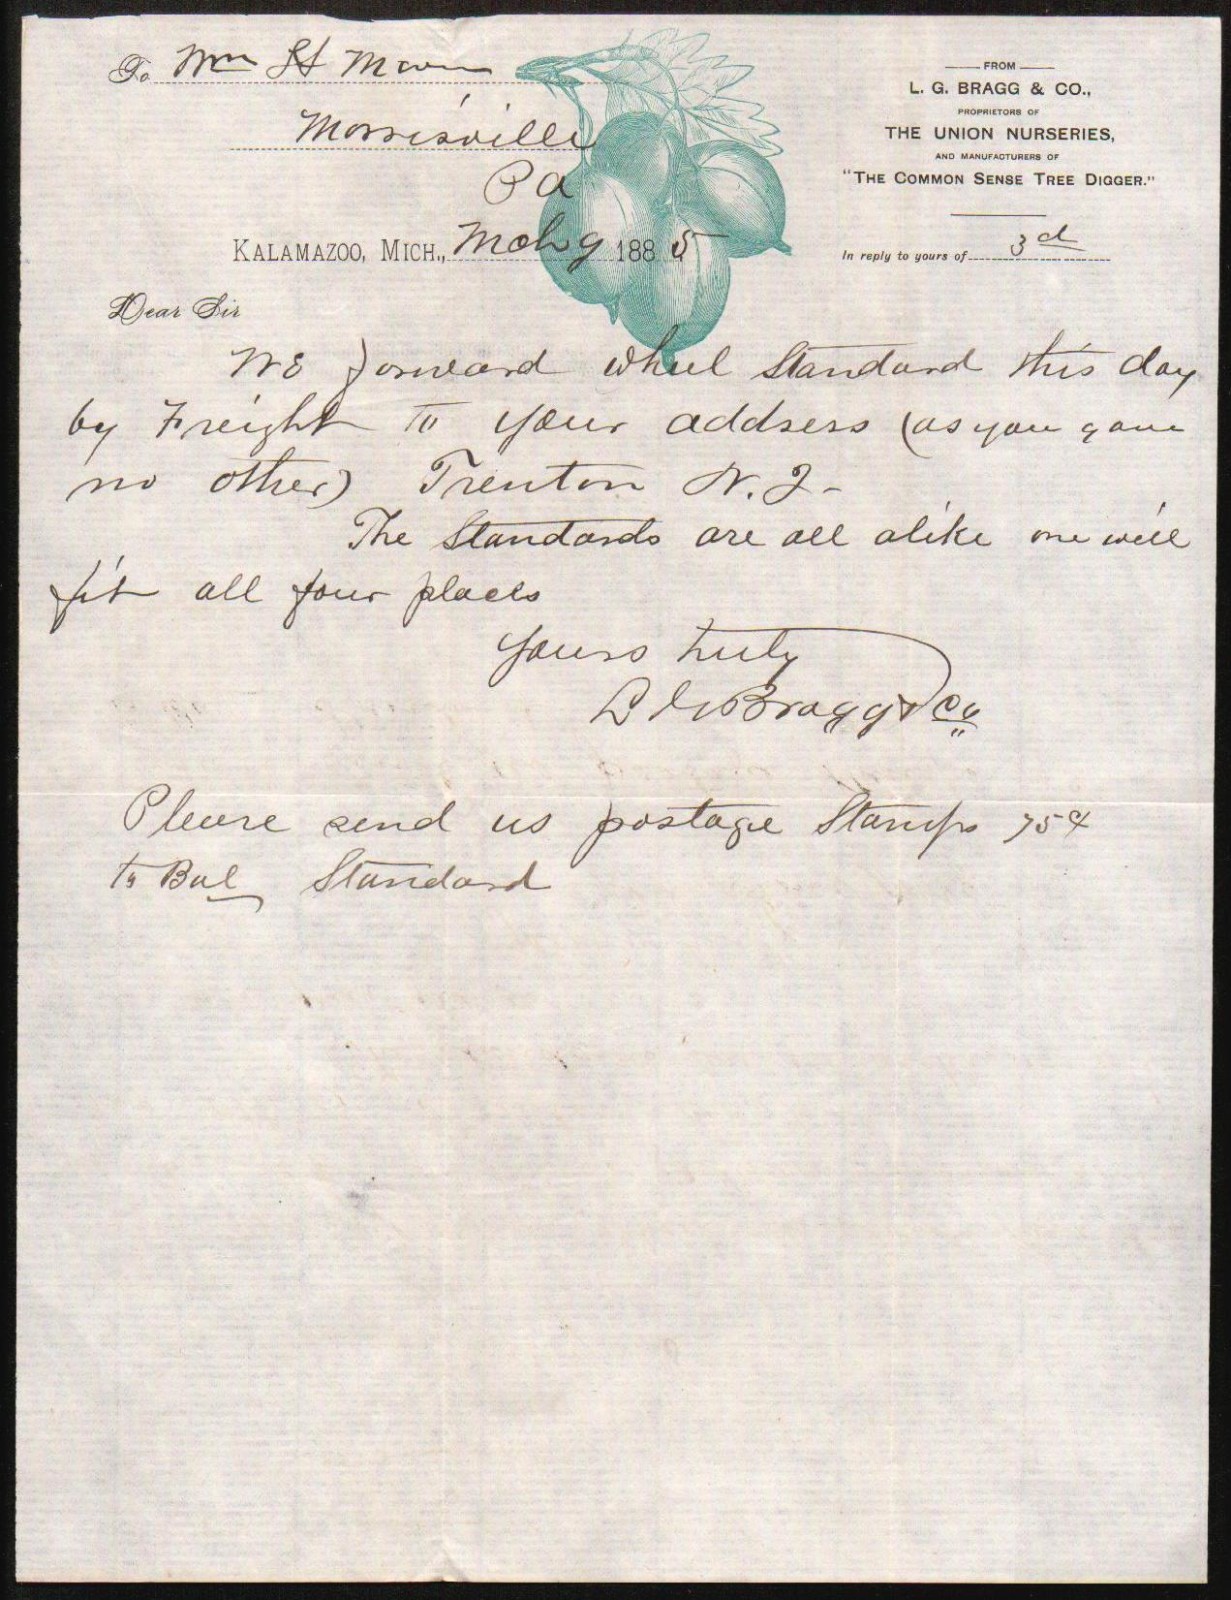 To Wm H Moon
Morrisville
Pa
KALAMAZOO, MICH., Mch 9 1885
FROM
L. G. BRAGG & CO.,
PROPRIETORS OF
THE UNION NURSERIES,
AND MANUFACTURERS OF
"THE COMMON SENSE TREE DIGGER."
In reply to yours of 3d
Dear Sir
We forward wheel Standard this day
by Freight to your address (as you gave
no other) Trenton N.J-
The Standards are all alike one will
fit all four places
Yours truly
L G Bragg & Co
Please send us postage Stamps 75¢
to Bal Standard